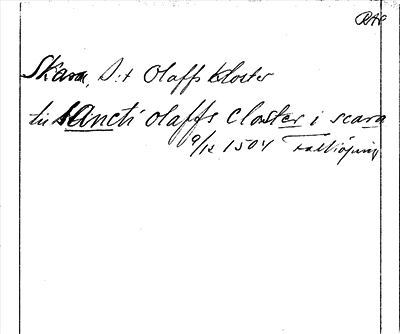 RAp
Skara, S:t Olaffs kloster
till sancti olaffs closter i scara
9/12 1504 Falköping